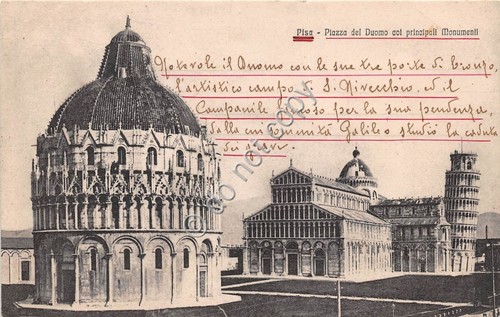 Pisa - Piazza del Duomo coi principali Monumenti
Notevole il Duomo con le sue tre porte di bronzo,
l'artistico campo di S. Nivecchio, ed il
Campanile famoso per la sua pendenza,
dalla cui sommità Galileo studiò la caduta
dei gravi.
copy